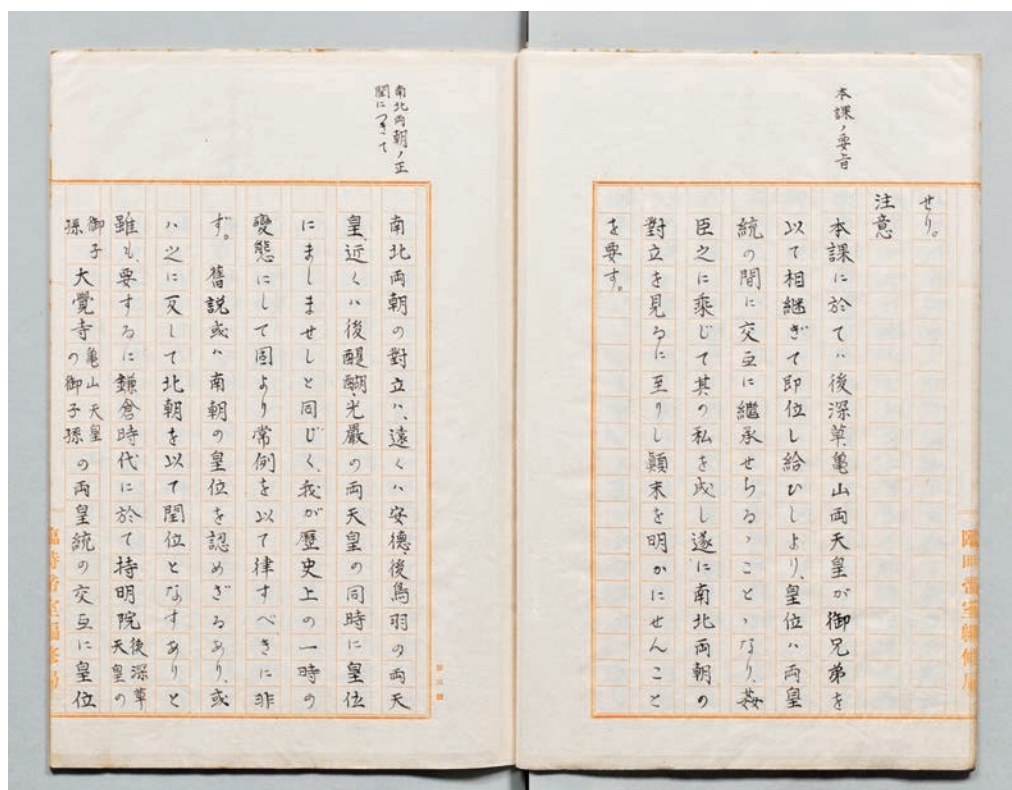 本課ノ要旨
せり。
注意
本課に於てハ後深草、亀山両天皇が御兄弟を
以て相継ぎて即位し給ひしより、皇位ハ両皇
統の間に交互に繼承せらるゝことゝなり、姦
臣之に乘じて其の私を成し遂に南北両朝の
對立を見るに至りし顛末を明かにせんこと
を要す。
南北両朝ノ正
閏につきて
南北両朝の對立ハ、遠くハ安德、後鳥羽の両天
皇、近くハ後醍醐、光嚴の両天皇の同時に皇位
にましませしと同じく、我が歷史上の一時の
變態にして固より常例を以て律すべきに非
ず。舊説或ハ南朝の皇位を認めざるあり、或
ハ之に反して北朝を以て閏位となすありと
雖も、要するに鎌倉時代に於て持明院後深草天皇の
御子孫大覺寺亀山天皇の御子孫の両皇統の交互に皇位